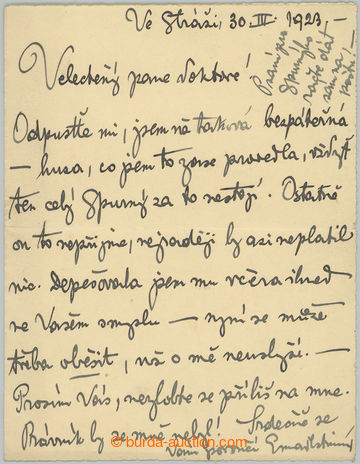 Ve Stráži, 30. III. 1923, –
Velectěný pane doktore!
Psaní pro
Spurného
račte dát
Odpusťte mi, jsem ná taková bezpáteřná
– husa, co jsem to zase provedla, vždyť
ten celý Spurný za to nestojí. Ostatně
on to nepřijme, nejraději by asi neplatil
nic. Depešovala jsem mu včera ihned
ve Vašem smyslu – nyní se může
třeba oběsit, už o mě neuslyší. –
Prosím Vás, nezlobte se příliš na mne.
Právník by ze mně nebyl! Srdečně se
Vám poroučí
© burda-auction.com